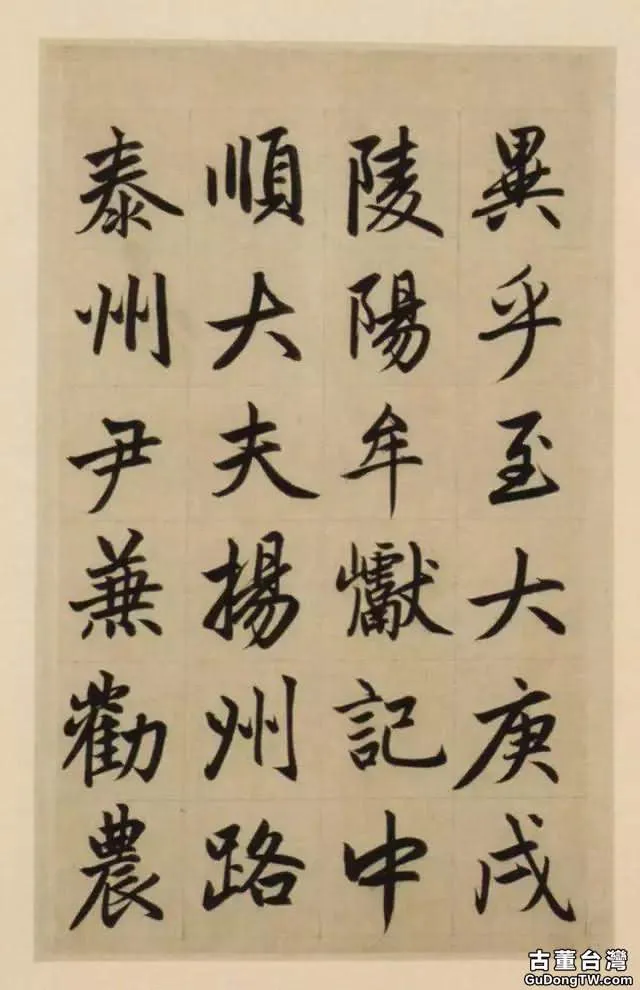 異乎至大庚戌
陵陽牟巘記中
順大夫揚州路
泰州尹兼勸農
古董台灣
GuDongTW.com